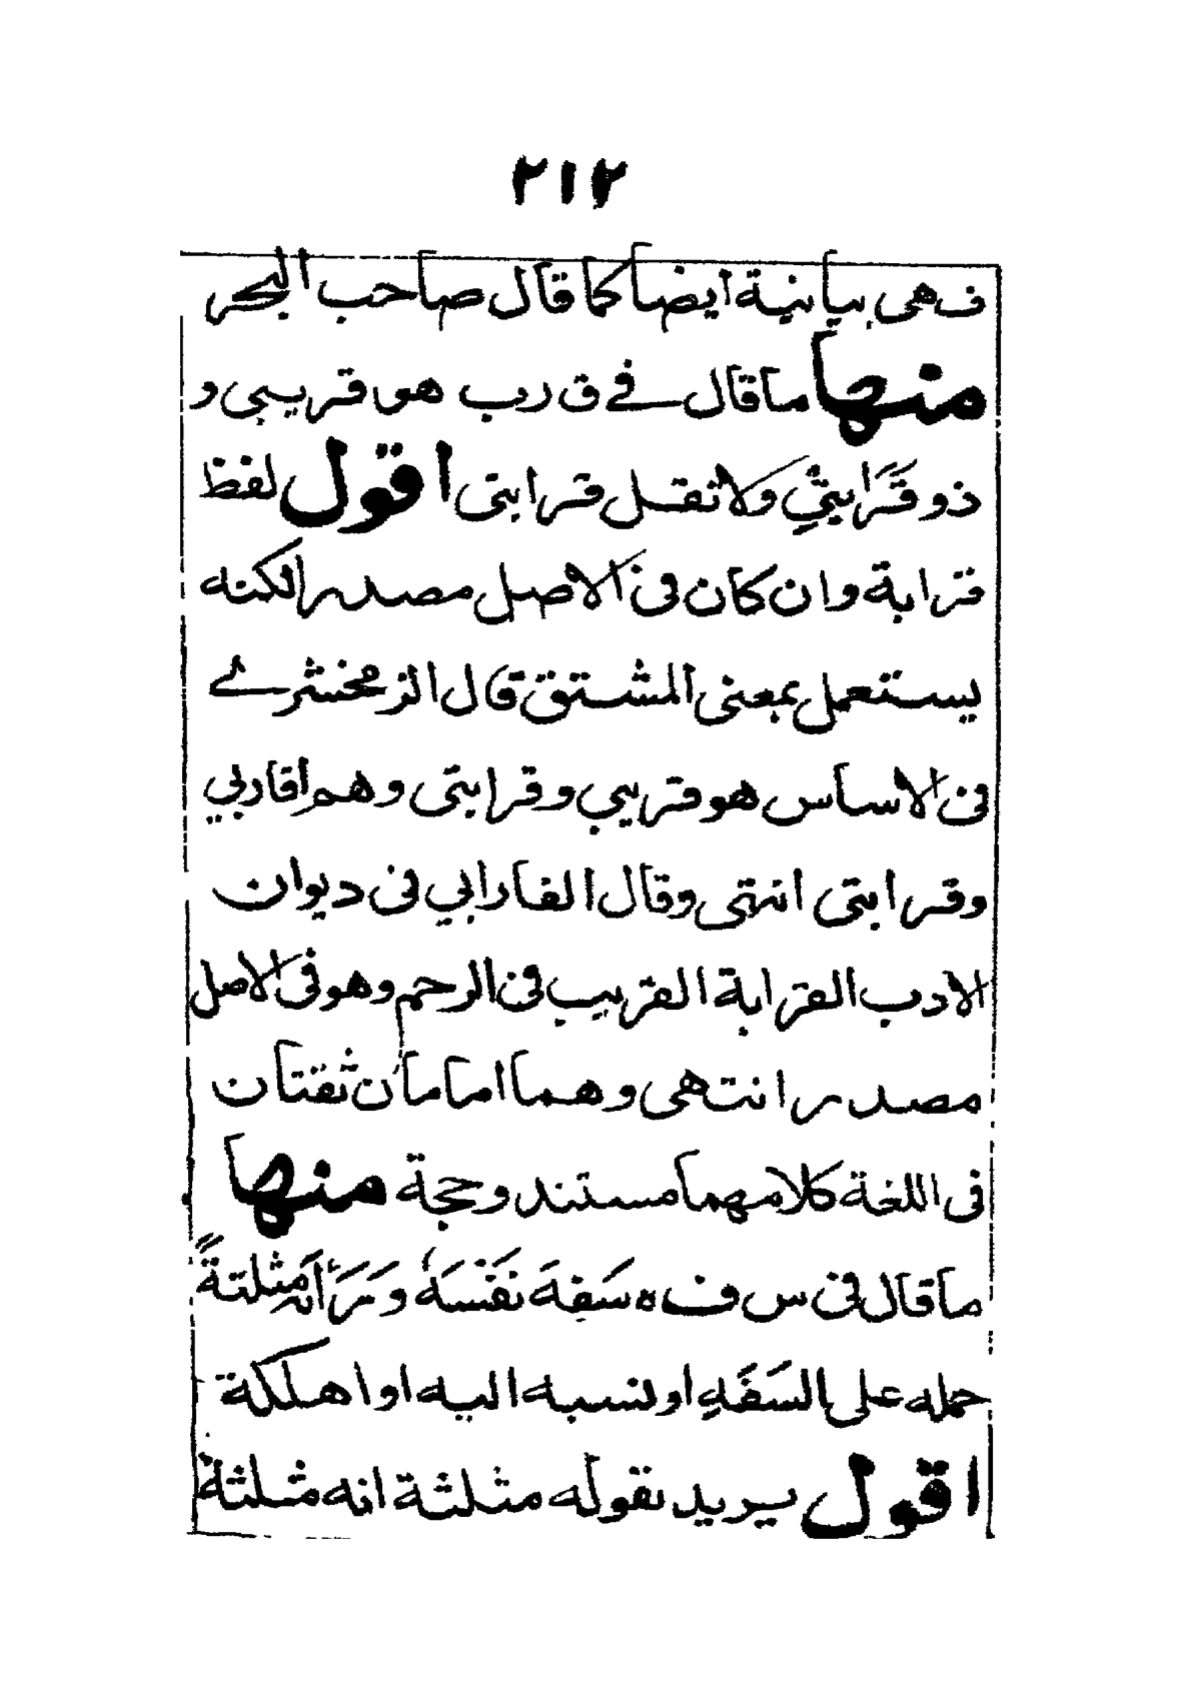 ٢١٢
ف هى بيانية ايضا كما قال صاحب البحر
منها ما قال فے ق رب هو قريبى و
ذو قَرَابتِي ولا تقل قرابتى اقول لفظ
قرابة وان كان فى الاصل مصدرا لكنه
يستعمل بمعنى المشتق قال الزمخشرے
فى الاساس هو قريبى وقرابتى وهم أقاربي
وقرابتى انتهى وقال الفارابي فى ديوان
الادب القرابة القريب فى الرحم وهو فى الاصل
مصدر انتهى وهما امامان ثقتان
فى اللغة كلامهما مستند وحجة منها
ما قال فى س ف ه سَفِهَ نَفْسَهُ وَرَأيَه مثلثةً
حمله على السَفَهِ او نسبه اليه او اهلكة
اقول يريد بقوله مثلثة انه مثلثة